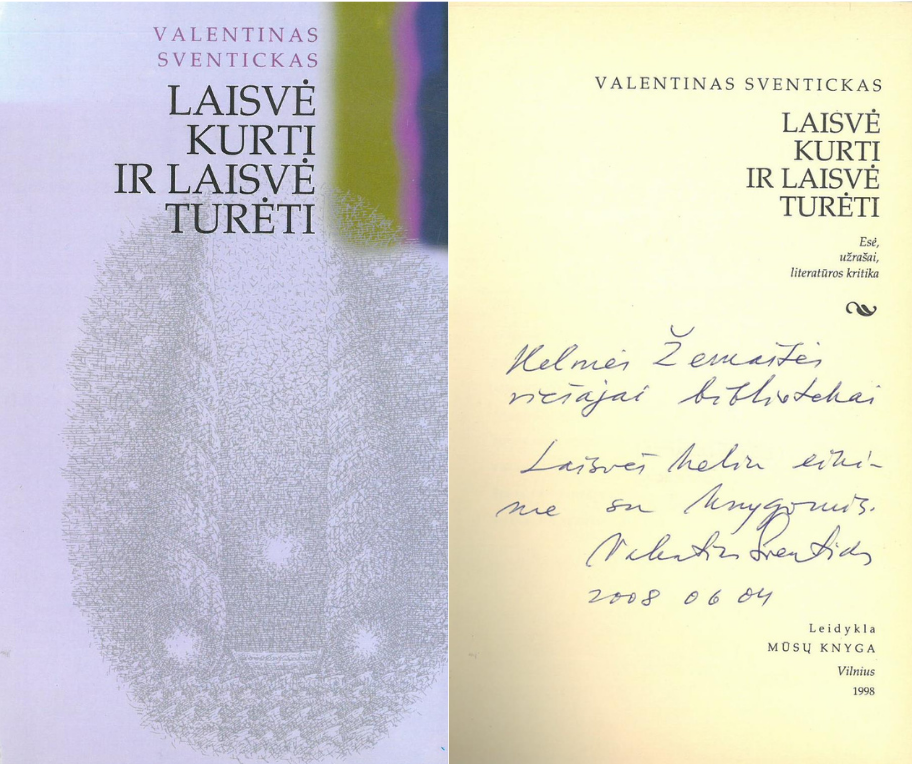 VALENTINAS
SVENTICKAS
LAISVĖ
KURTI
IR LAISVĖ
TURĖTI
VALENTINAS SVENTICKAS
LAISVĖ
KURTI
IR LAISVĖ
TURĖTI
Esė,
užrašai,
literatūros kritika
Kelmės Žemaitės
viešajai bibliotekai
Laisvės keliu eiki-
me su knygomis.
2008 06 04
Leidykla
MŪSŲ KNYGA
Vilnius
1998